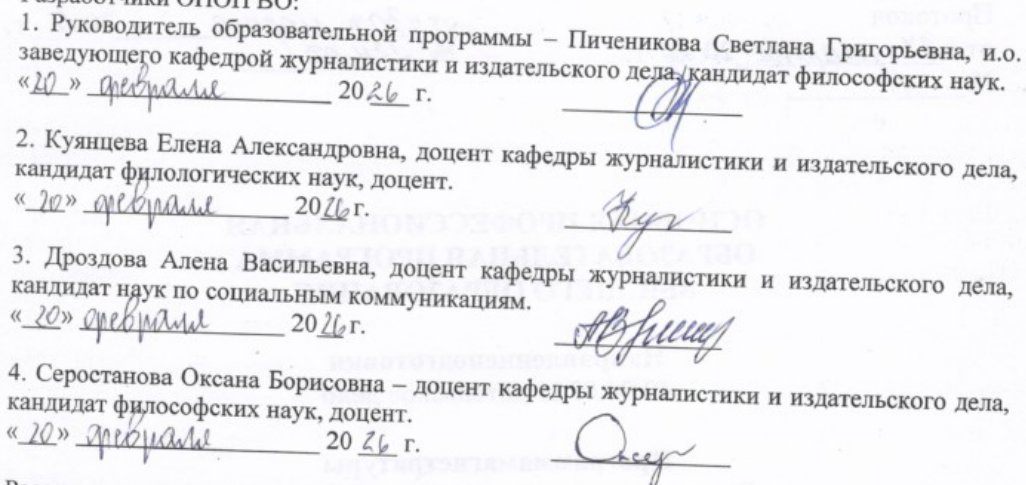 Разработчики ОПОП ВО:
1. Руководитель образовательной программы – Пиченикова Светлана Григорьевна, и.о.
заведующего кафедрой журналистики и издательского дела, кандидат философских наук.
«20» февраля 2026 г.
2. Куянцева Елена Александровна, доцент кафедры журналистики и издательского дела,
кандидат филологических наук, доцент.
«20» февраля 2026 г.
3. Дроздова Алена Васильевна, доцент кафедры журналистики и издательского дела,
кандидат наук по социальным коммуникациям.
«20» февраля 2026 г.
4. Серостанова Оксана Борисовна – доцент кафедры журналистики и издательского дела,
кандидат философских наук, доцент.
«20» февраля 20 26 г.